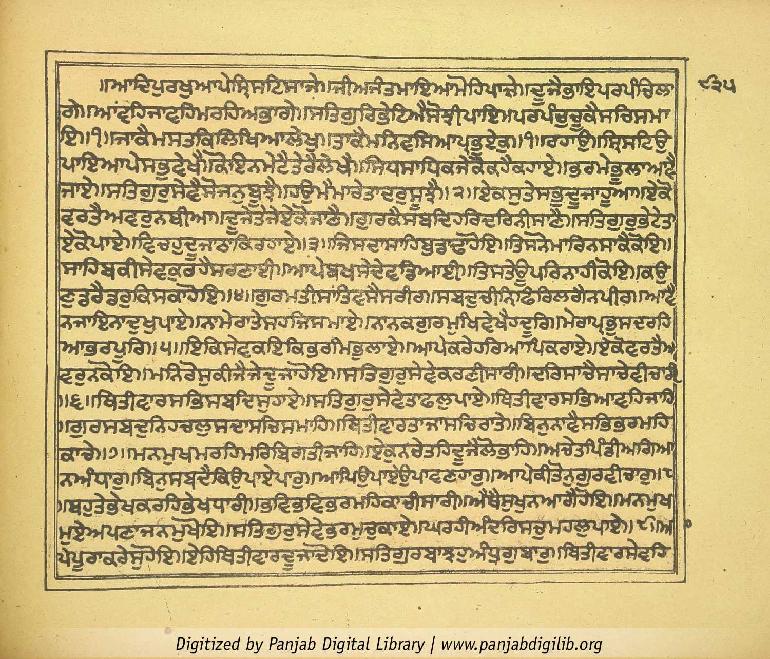 ॥ਆਦਿਪੁਰਖੁਆਪੇਸ੍ਰਿਸਟਿਸਾਜੇ॥ਜੀਅਜੰਤਮਾਇਆਮੋਹਿਪਾਜੇ॥ਦੂਜੈਭਾਇਪਰਪੰਚਿਲਾ ੯੩੫
ਗੇ॥ਆਵਹਿਜਾਵਹਿਮਰਹਿਅਭਾਗੇ॥ਸਤਿਗੁਰਿਭੇਟਿਐਸੋਝੀਪਾਇ॥ਪਰਪੰਚੁਚੂਕੈਸਚਿਸਮਾ
ਇ॥੧॥ਜਾਕੈਮਸਤਕਿਲਿਖਿਆਲੇਖੁ॥ਤਾਕੈਮਨਿਵਸਿਆਪ੍ਰਭੁਏਕੁ॥੧॥ਰਹਾਉ॥ਸ੍ਰਿਸਟਿਉ
ਪਾਇਆਪੇਸਭੁਵੇਖੈ॥ਕੋਇਨਮੇਟੈਤੇਰੈਲੇਖੈ॥ਸਿਧਸਾਧਿਕਜੇਕੋਕਹੈਕਹਾਏ॥ਭਰਮੇਭੂਲਾਆਵੈ
ਜਾਏ॥ਸਤਿਗੁਰੁਸੇਵੈਸੋਜਨੁਬੂਝੈ॥ਹਉਮੈਮਾਰੇਤਾਦਰੁਸੂਝੈ॥੨॥ਏਕਸੁਤੇਸਭੁਦੂਜਾਹੂਆ॥ਏਕੋ
ਵਰਤੈਅਵਰੁਨਬੀਆ॥ਦੂਜੇਤੇਜੇਏਕੋਜਾਣੈ॥ਗੁਰਕੈਸਬਦਿਹਰਿਦਰਿਨੀਸਾਣੈ॥ਸਤਿਗੁਰੁਭੇਟੇਤਾ
ਏਕੋਪਾਏ॥ਵਿਚਹੁਦੂਜਾਠਾਕਿਰਹਾਏ॥੩॥ਜਿਸਦਾਸਾਹਿਬੁਡਾਢਾਹੋਇ॥ਤਿਸਨੋਮਾਰਿਨਸਾਕੈਕੋਇ॥
ਸਾਹਿਬਕੀਸੇਵਕੁਰਹੈਸਰਣਾਈ॥ਆਪੇਬਖਸੇਦੇਵਡਿਆਈ॥ਤਿਸਤੇਊਪਰਿਨਾਹੀਕੋਇ॥ਕਉ
ਣੁਡਰੈਡਰੁਕਿਸਕਾਹੋਇ॥੪॥ਗੁਰਮਤੀਸਾਂਤਿਵਸੈਸਰੀਰ॥ਸਬਦੁਚੀਨਿਫਿਰਿਲਗੈਨਪੀਰ॥ਆਵੈ
ਨਜਾਇਨਾਦੁਖੁਪਾਏ॥ਨਾਮੇਰਾਤੇਸਹਜਿਸਮਾਏ॥ਨਾਨਕਗੁਰਮੁਖਿਵੇਖੈਹਦੂਰਿ॥ਮੇਰਾਪ੍ਰਭੁਸਦਰਹਿ
ਆਭਰਪੂਰਿ॥੫॥ਇਕਿਸੇਵਕਇਕਿਭਰਮਿਭੁਲਾਏ॥ਆਪੇਕਰੇਹਰਿਆਪਿਕਰਾਏ॥ਏਕੋਵਰਤੈਅ
ਵਰੁਨਕੋਇ॥ਮਨਿਰੋਸੁਕੀਜੈਜੇਦੂਜਾਹੋਇ॥ਸਤਿਗੁਰੁਸੇਵੇਕਰਣੀਸਾਰੀ॥ਦਰਿਸਾਚੈਸਾਚੇਵੀਚਾਰੀ
॥੬॥ਥਿਤੀਵਾਰਸਭਿਸਬਦਿਸੁਹਾਏ॥ਸਤਿਗੁਰੁਸੇਵੇਤਾਫਲੁਪਾਏ॥ਥਿਤੀਵਾਰਸਭਿਆਵਹਿਜਾਹਿ
॥ਗੁਰਸਬਦੁਨਿਹਚਲੁਸਦਾਸਚਿਸਮਾਹਿ॥ਥਿਤੀਵਾਰਤਾਜਾਸਚਿਰਾਤੇ॥ਬਿਨੁਨਾਵੈਸਭਿਭਰਮਹਿ
ਕਾਚੇ॥੭॥ਮਨਮੁਖਮਰਹਿਮਰਿਬਿਗਤੀਜਾਹਿ॥ਏਕੁਨਚੇਤਹਿਦੂਜੈਲੋਭਾਹਿ॥ਅਚੇਤਪਿੰਡੀਅਗਿਆ
ਨਅੰਧਾਰੁ॥ਬਿਨੁਸਬਦੈਕਿਉਪਾਏਪਾਰੁ॥ਆਪਿਉਪਾਏਉਪਾਵਣਹਾਰੁ॥ਆਪੇਕੀਤੋਨੁਗੁਰਵੀਚਾਰੁ॥੮
॥ਬਹੁਤੇਭੇਖਕਰਹਿਭੇਖਧਾਰੀ॥ਭਵਿਭਵਿਭਰਮਹਿਕਾਚੀਸਾਰੀ॥ਐਥੈਸੁਖੁਨਆਗੈਹੋਇ॥ਮਨਮੁਖ
ਮੁਏਅਪਣਾਜਨਮੁਖੋਇ॥ਸਤਿਗੁਰੁਸੇਵੇਭਰਮੁਚੁਕਾਏ॥ਘਰਹੀਅੰਦਰਿਸਚੁਮਹਲੁਪਾਏ॥੯॥ਆ
ਪੇਪੂਰਾਕਰੇਸੁਹੋਇ॥ਏਹਿਥਿਤੀਵਾਰਦੂਜਾਦੋਇ॥ਸਤਿਗੁਰਬਾਝਹੁਅੰਧੁਗੁਬਾਰੁ॥ਥਿਤੀਵਾਰਸੇਵਹਿ
Digitized by Panjab Digital Library | www.panjabdigilib.org